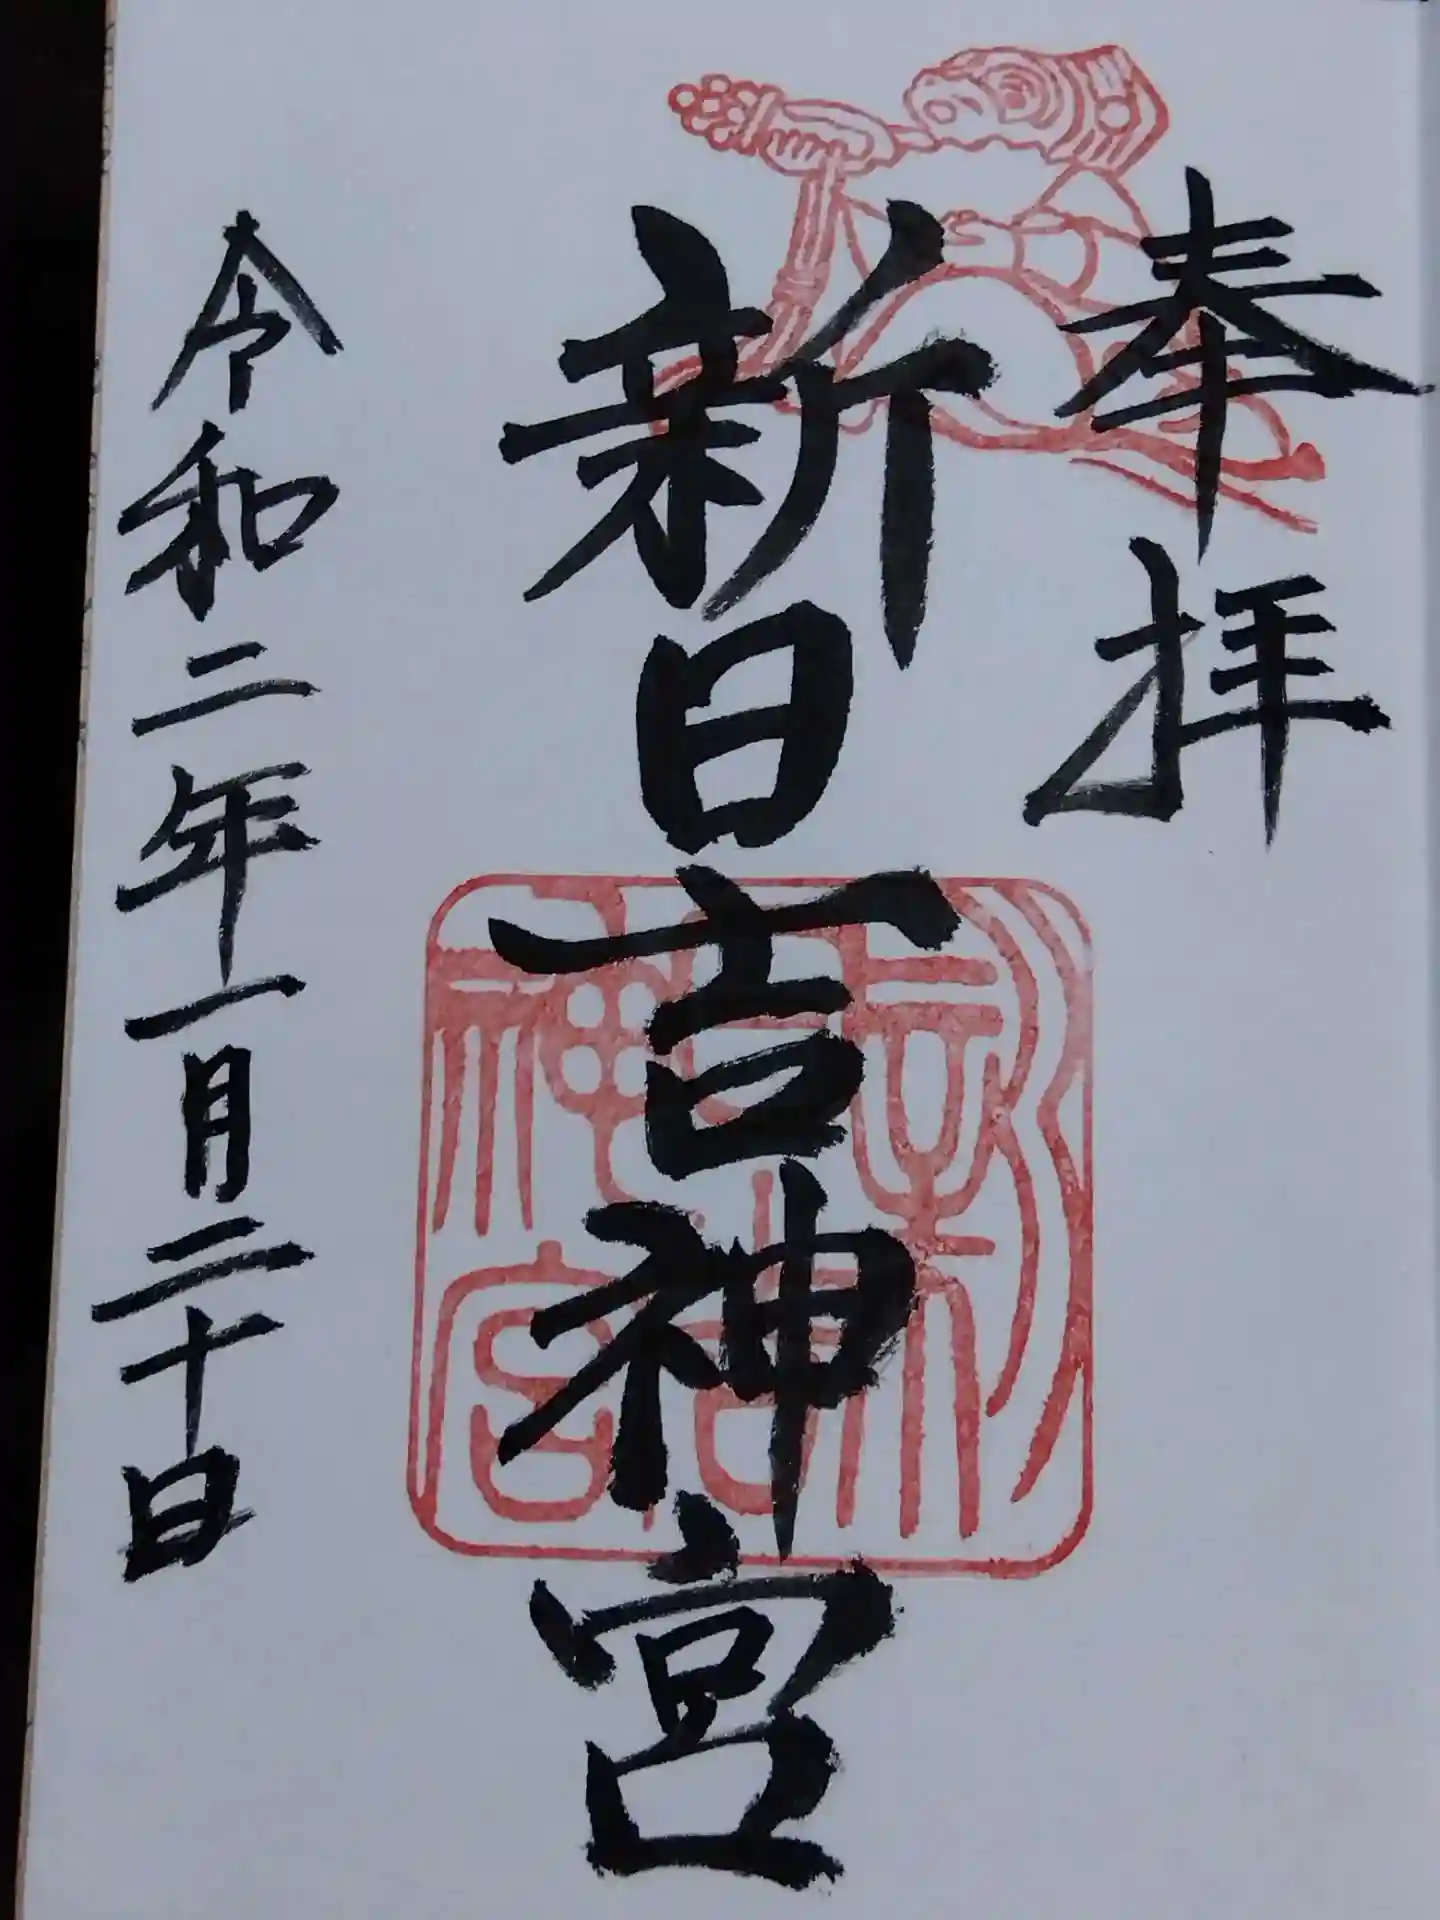 奉拝
新日吉神宮
令和二年一月二十日
新日吉神宮